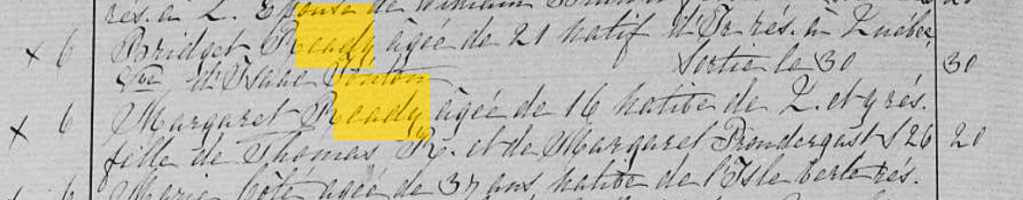 rés. à L. Épouse de William
x 6 Bridget Ready âgée de 21 natif d'Ir. rés. à Québec,
Vve d'Isaac Fonton Sortie le 30 30
x 6 Margaret Ready âgée de 16 native de Q. et y rés.
fille de Thomas R. et de Margaret Prendergast S 26 20
6 Marie Côté âgée de 37 ans, native de l'Isle Verte rés.